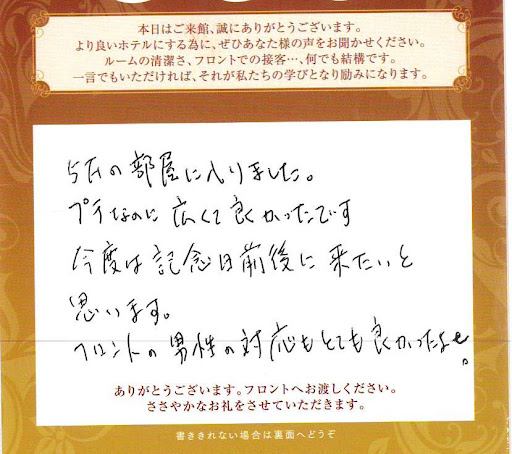 本日はご来館、誠にありがとうございます。
より良いホテルにする為に、ぜひあなた様の声をお聞かせください。
ルームの清潔さ、フロントでの接客…、何でも結構です。
一言でもいただければ、それが私たちの学びとなり励みになります。
の部屋に入りました。
プチなのに広くて良かったです
今度は記念日前後に来たいと
思います。
フロントの男性の対応もとても良かったよ
ありがとうございます。フロントへお渡しください。
ささやかなお礼をさせていただきます。
書ききれない場合は裏面へどうぞ